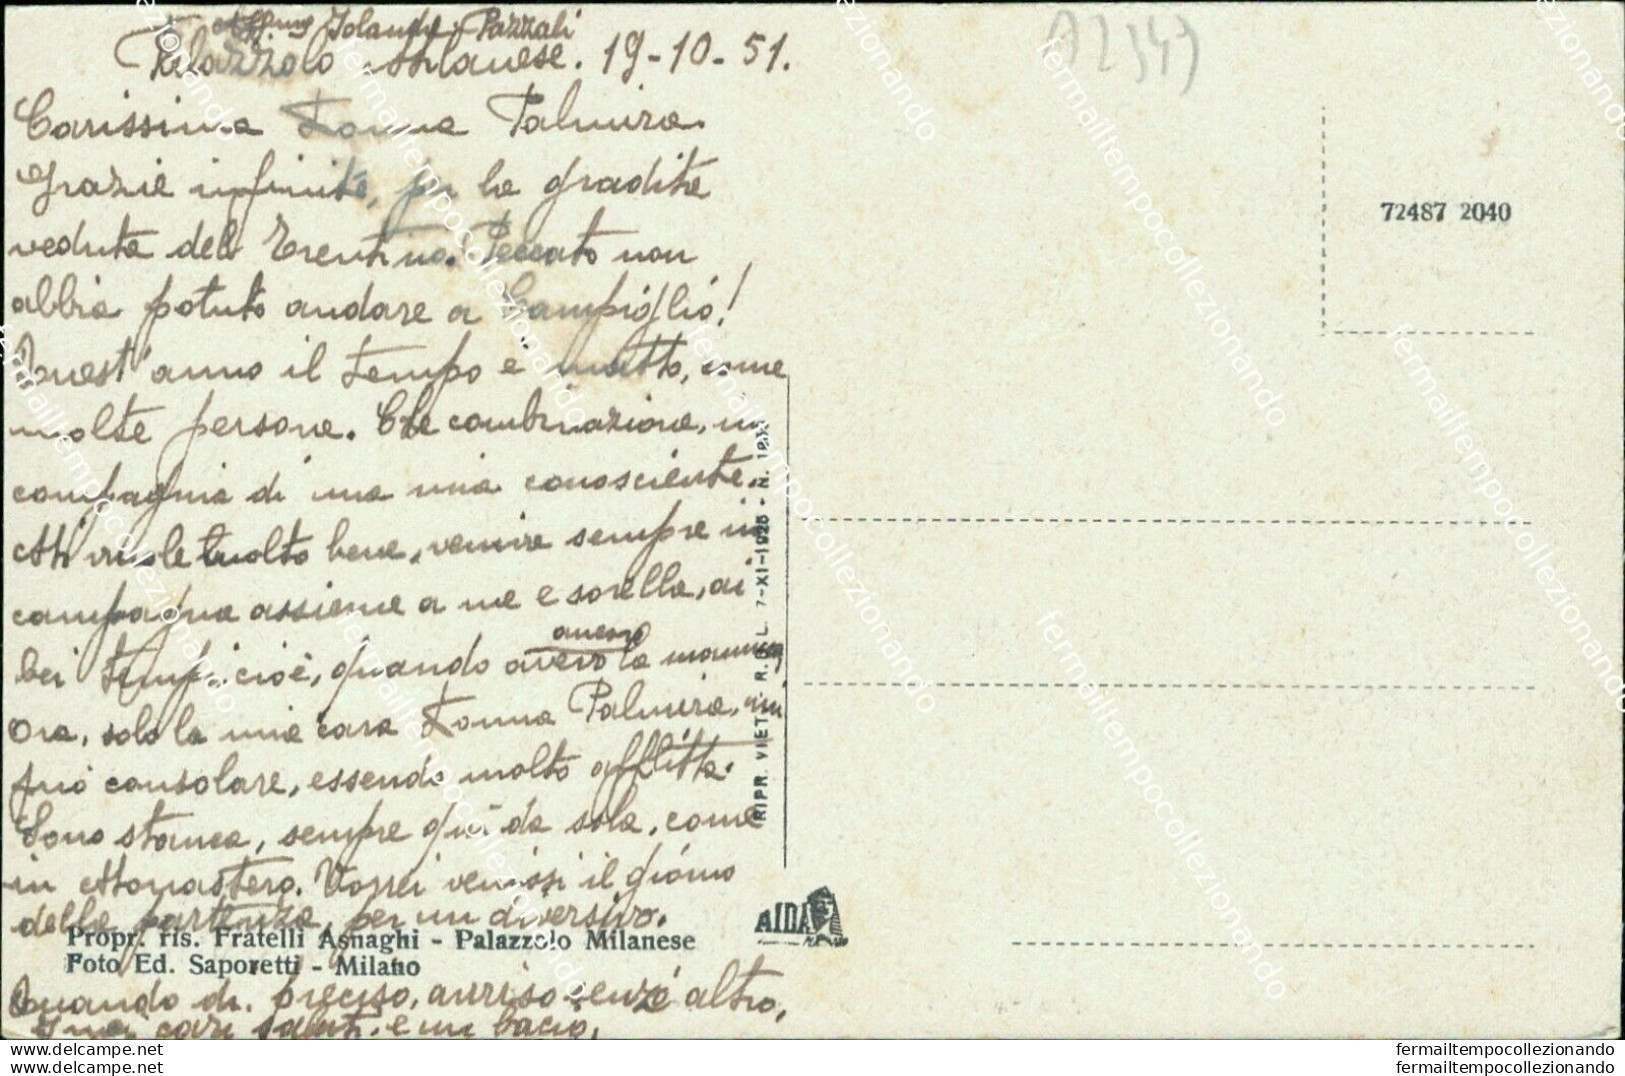 Aff.ma Jolanda Pazzali
Palazzolo Milanese. 19-10-51.
Carissima Donna Palmira.
Grazie infinite, per la gradita
veduta del Trentino. Peccato non
abbia potuto andare a Campiglio!
Quest'anno il tempo è matto, come
molte persone. Che combinazione, in
compagnia di una mia conoscente.
Mi vuole molto bene, venire sempre in
campagna assieme a me e sorella, ai
bei tempi. cioè, quando avevo ancora la mamma,
Ora, solo la mia cara Donna Palmira, mi
può consolare, essendo molto afflitta.
Sono stanca, sempre qui da sola, come
in Monastero. Vorrei venissi il giorno
della partenza, per un diversivo.
Propr. ris. Fratelli Asnaghi - Palazzolo Milanese
Foto Ed. Saporetti - Milano
Quando di preciso, avviso senz'altro,
I miei cari saluti e un bacio,
RIPR. VIET. R.D.L. 7-XI-1925 - N.
AIDA
A2343
72487 2040
fermailtempocollezionando
fermailtempocollezionando
fermailtempocollezionando
fermailtempocollezionando